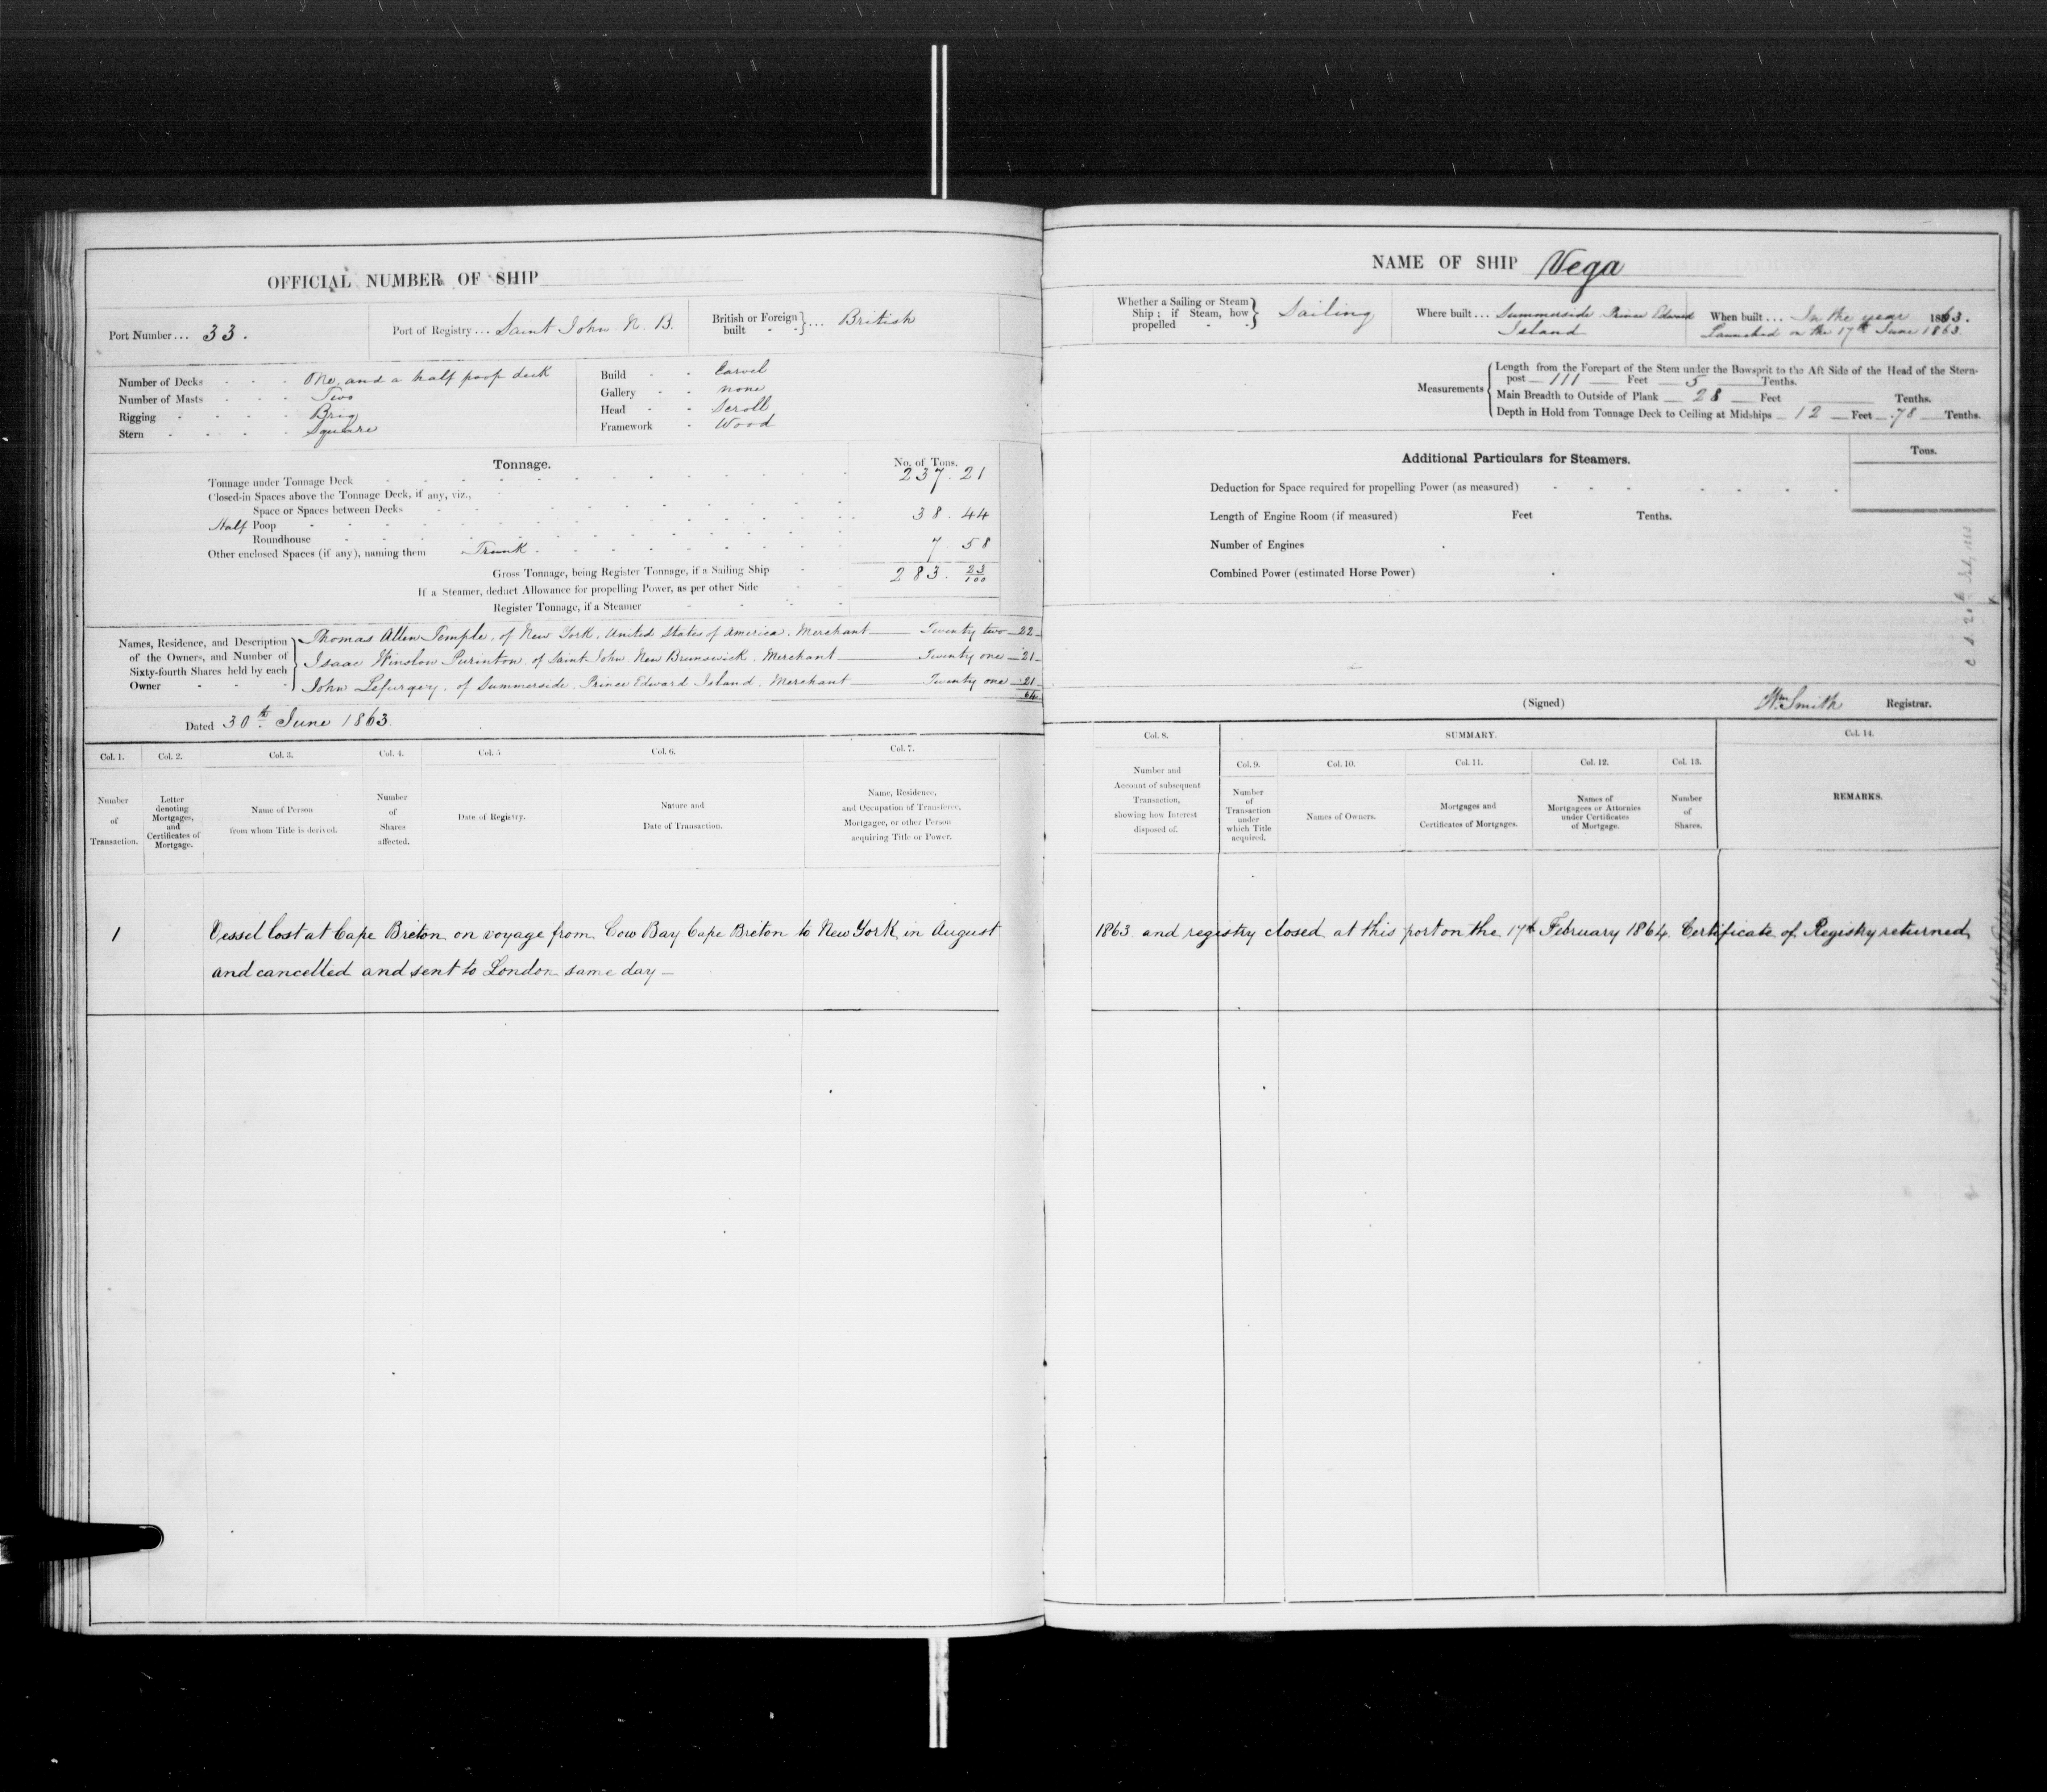 OFFICIAL NUMBER OF SHIP
Port Number ... 33.
Port of Registry ... Saint John N. B.
British or Foreign built - - } ... British
Number of Decks - - - One, and a half poop deck
Number of Masts - - - Two
Rigging - - - - Brig
Stern - - - - Square
Build - - Carvel
Gallery - - none
Head - - Scroll
Framework - Wood
Tonnage.
No. of Tons.
Tonnage under Tonnage Deck 237.21
Closed-in Spaces above the Tonnage Deck, if any, viz.,
Space or Spaces between Decks
Half Poop 38.44
Roundhouse
Other enclosed Spaces (if any), naming them Trunk 7 58
Gross Tonnage, being Register Tonnage, if a Sailing Ship 283. 23/100
If a Steamer, deduct Allowance for propelling Power, as per other Side
Register Tonnage, if a Steamer
Names, Residence, and Description of the Owners, and Number of Sixty-fourth Shares held by each Owner
Thomas Allen Temple, of New York, United States of America, Merchant — Twenty two — 22
Isaac Winslow Purinton, of Saint John New Brunswick, Merchant — Twenty one — 21
John Lefurgey, of Summerside, Prince Edward Island, Merchant — Twenty one — 21
64
Dated 30th June 1863.
Col. 1.
Number of Transaction.
Col. 2.
Letter denoting Mortgages, and Certificates of Mortgage.
Col. 3.
Name of Person from whom Title is derived.
Col. 4.
Number of Shares affected.
Col. 5
Date of Registry.
Col. 6.
Nature and Date of Transaction.
Col. 7.
Name, Residence, and Occupation of Transferee, Mortgagee, or other Person acquiring Title or Power.
1
Vessel lost at Cape Breton on voyage from Cow Bay Cape Breton to New York in August
and cancelled and sent to London same day —
NAME OF SHIP Vega
Whether a Sailing or Steam Ship; if Steam, how propelled - - } Sailing
Where built ... Summerside Prince Edward Island
When built ... In the year 1863.
Launched on the 17th June 1863.
Measurements
Length from the Forepart of the Stem under the Bowsprit to the Aft Side of the Head of the Stern-
post — 111 — Feet — 5 — Tenths.
Main Breadth to Outside of Plank — 28 — Feet — Tenths.
Depth in Hold from Tonnage Deck to Ceiling at Midships — 12 — Feet — .78 — Tenths.
Additional Particulars for Steamers.
Tons.
Deduction for Space required for propelling Power (as measured)
Length of Engine Room (if measured) Feet Tenths.
Number of Engines
Combined Power (estimated Horse Power)
(Signed) Wm Smith Registrar.
Col. 8.
Number and Account of subsequent Transaction, showing how Interest disposed of.
SUMMARY.
Col. 9.
Number of Transaction under which Title acquired.
Col. 10.
Names of Owners.
Col. 11.
Mortgages and Certificates of Mortgages.
Col. 12.
Names of Mortgagees or Attornies under Certificates of Mortgage.
Col. 13.
Number of Shares.
Col. 14.
REMARKS.
1863 and registry closed at this port on the 17th February 1864. Certificate of Registry returned